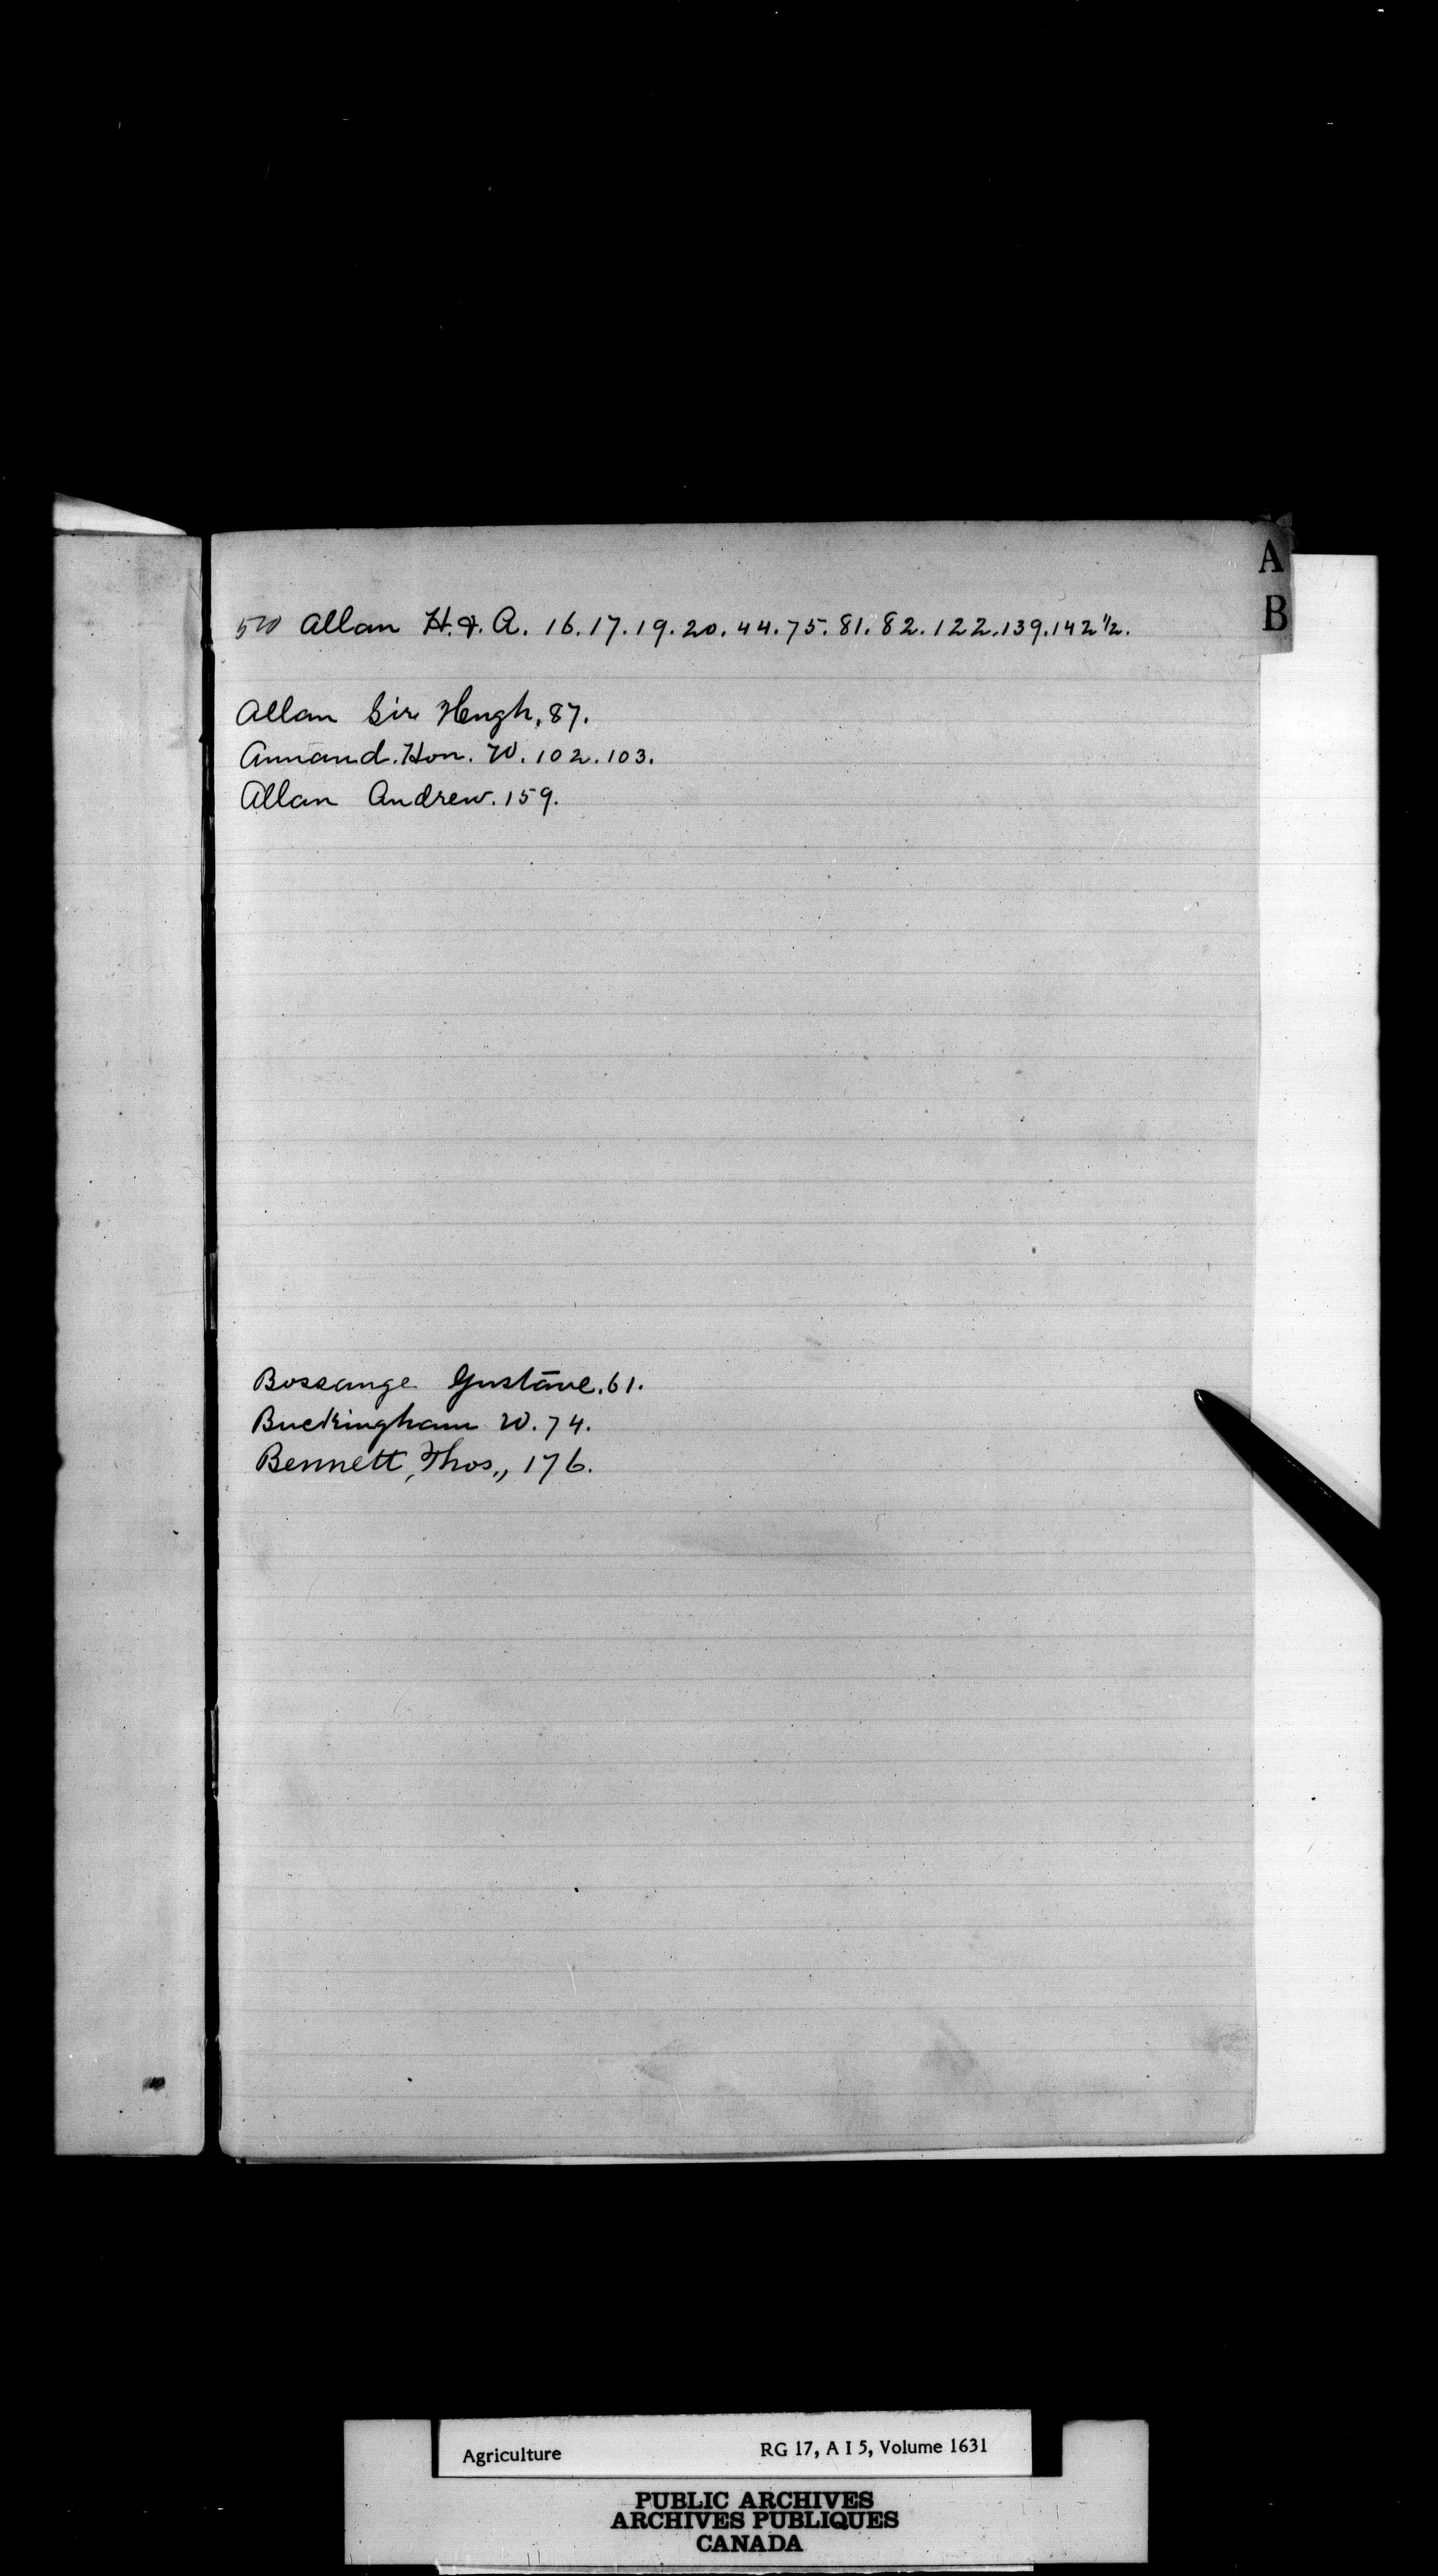 A
B
Allan H. & A. 16.17.19.20.44.75.81.82.122.139.142½.
Allan Sir Hugh, 87.
Annand. Hon. W. 102.103.
Allan Andrew. 159.
Bossange Gustave. 61.
Buckingham W. 74.
Bennett, Thos., 176.
Agriculture RG 17, A I 5, Volume 1631
PUBLIC ARCHIVES
ARCHIVES PUBLIQUES
CANADA